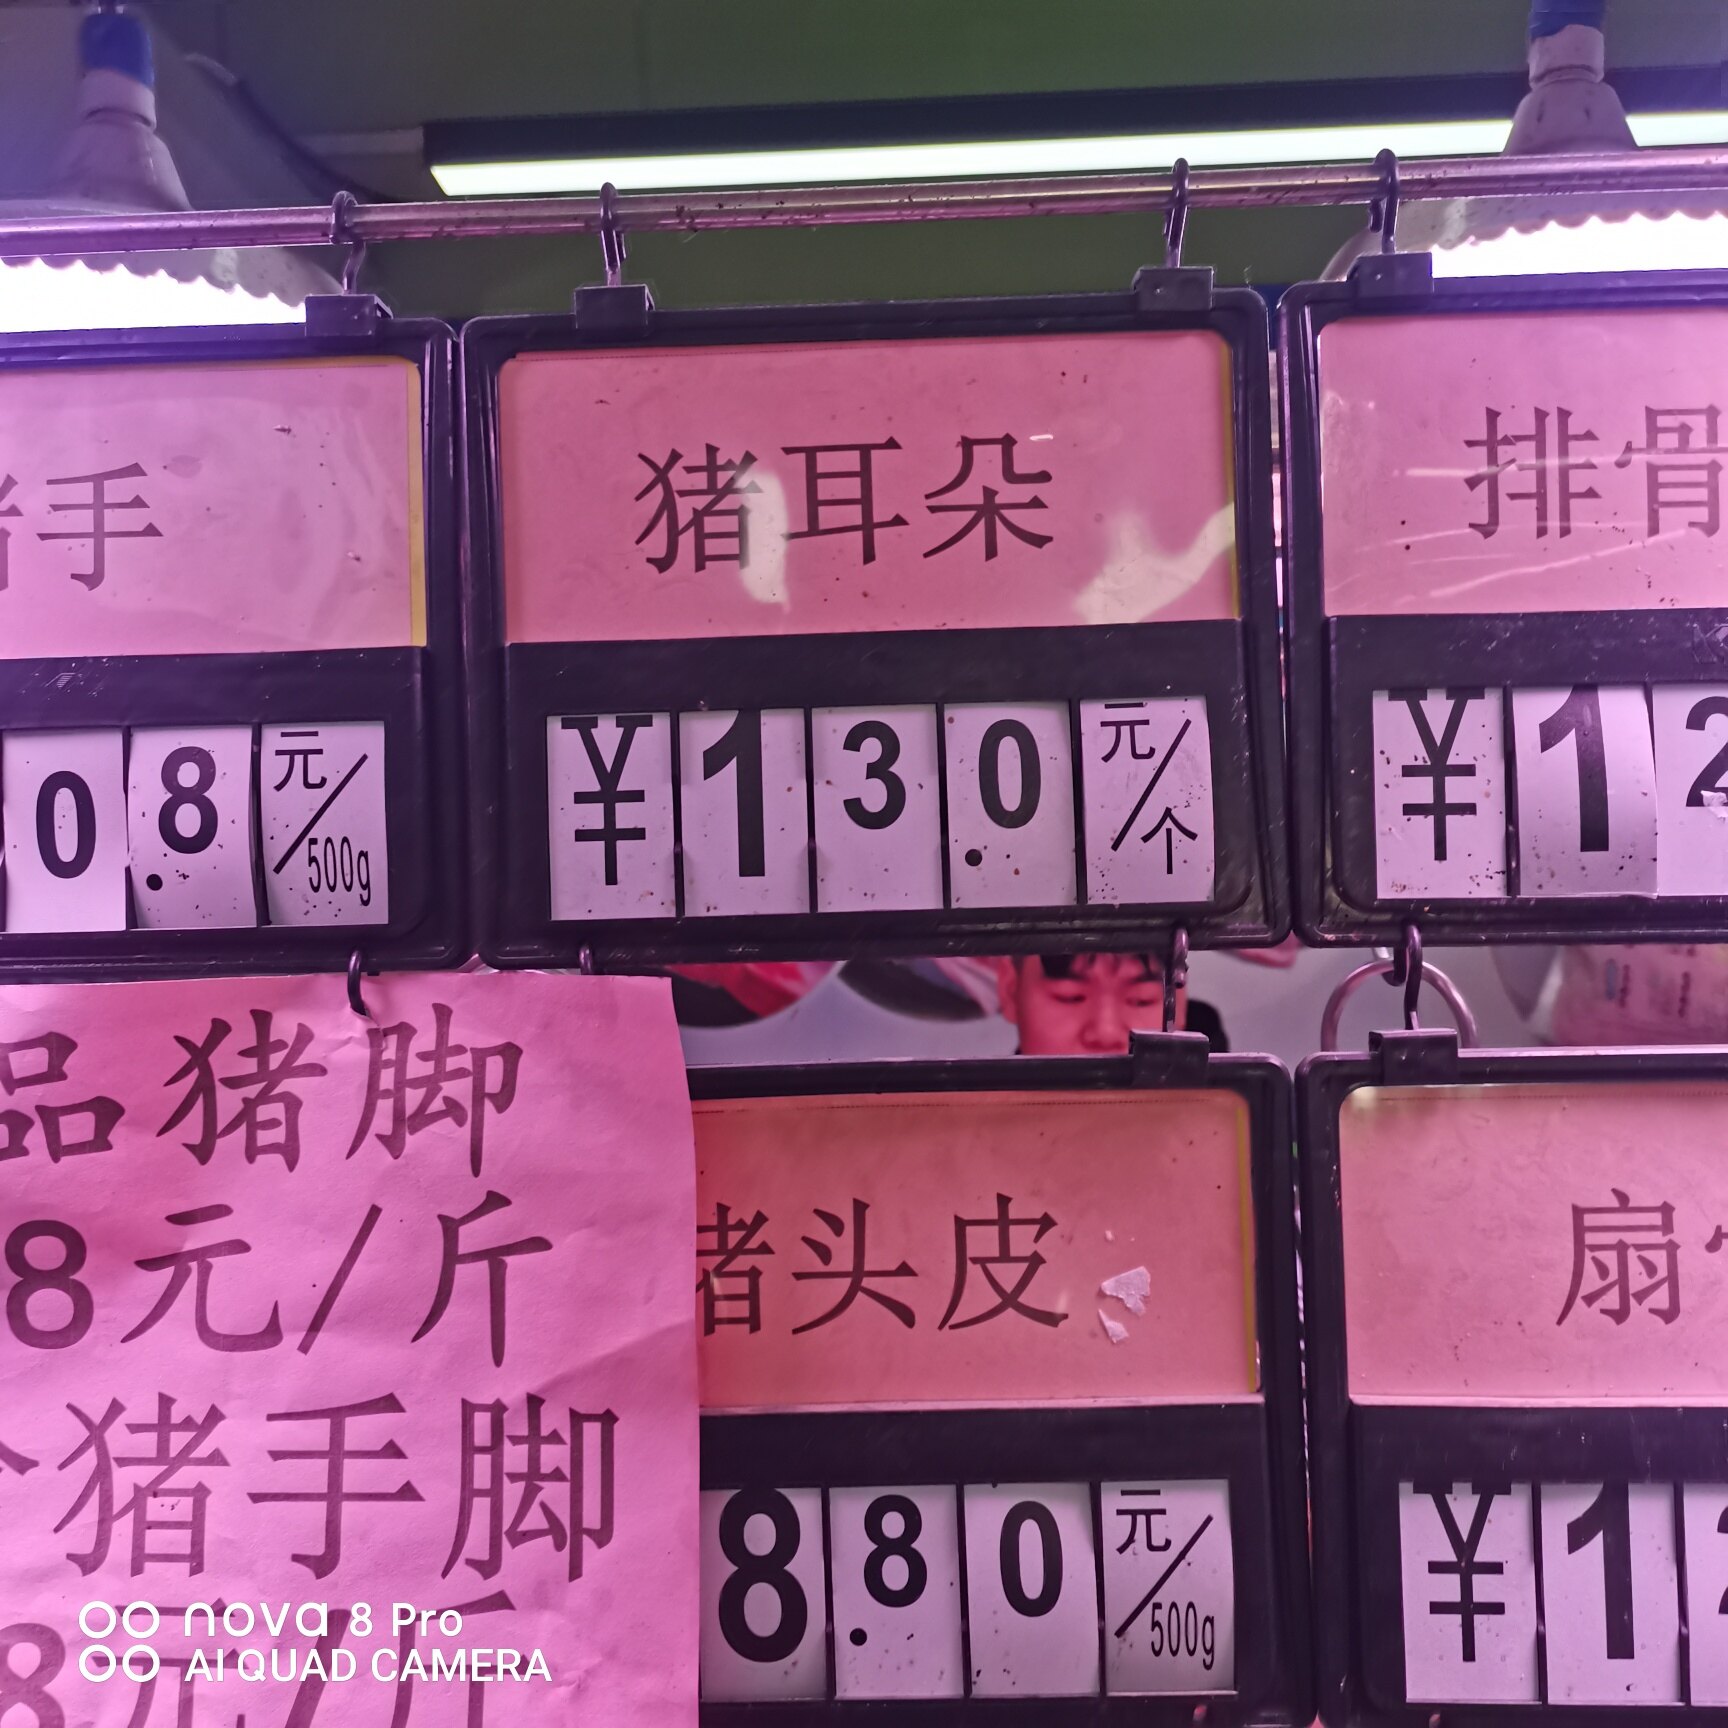 猪手
0.8元/500g
猪耳朵
¥13.0元/个
排骨
¥12
品猪脚
8元/斤
猪手脚
8元/斤
猪头皮
8.80元/500g
扇
¥1
nova 8 Pro
AI QUAD CAMERA